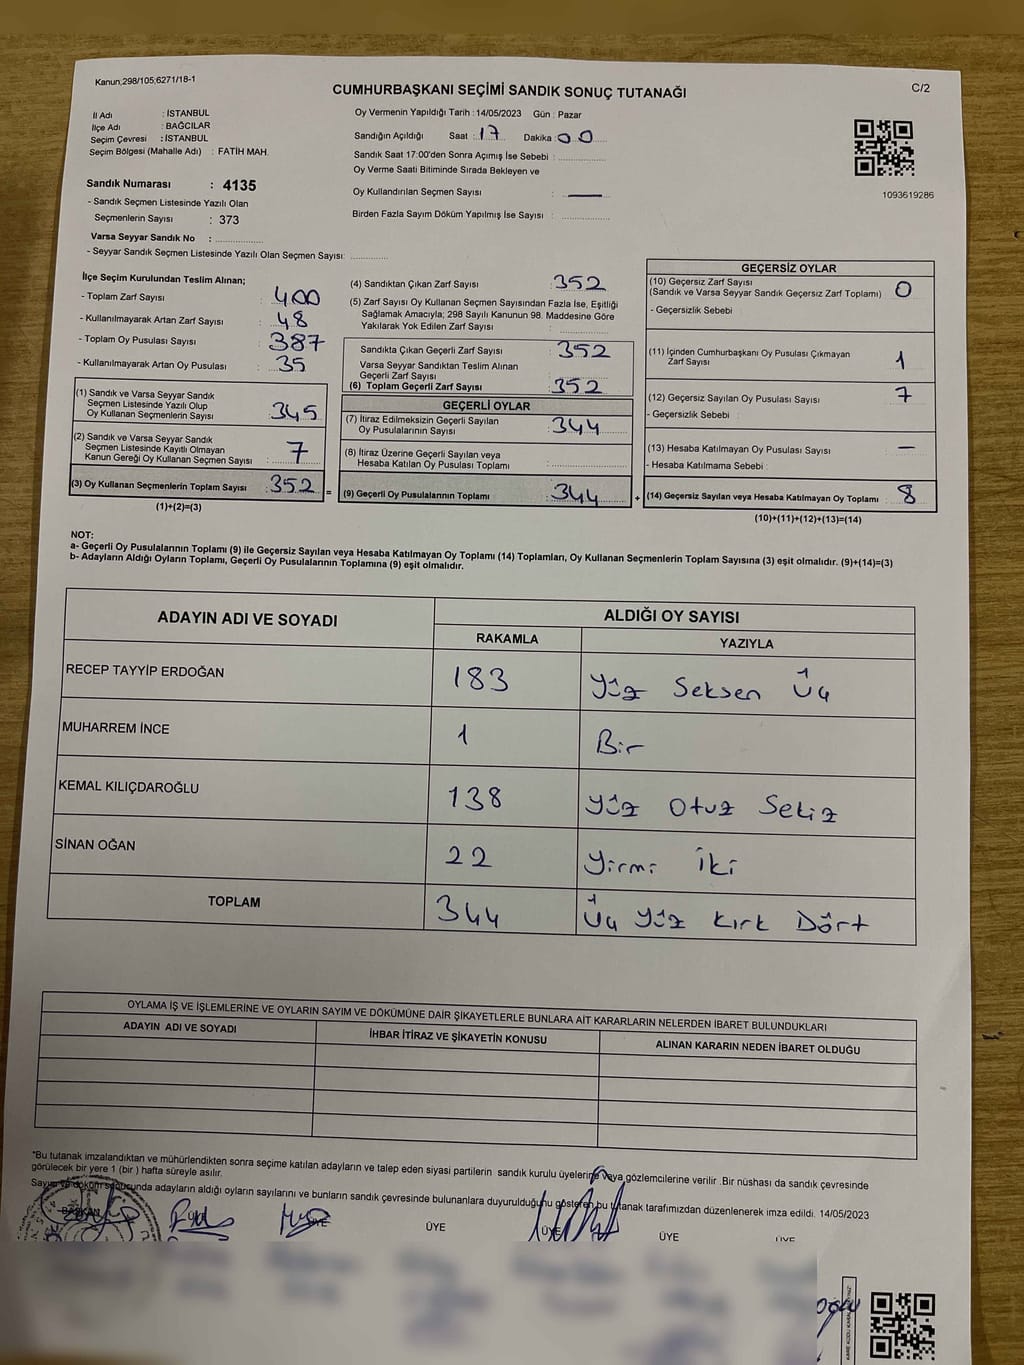 Kanun;298/105;6271/18-1
CUMHURBAŞKANI SEÇİMİ SANDIK SONUÇ TUTANAĞI
C/2
İl Adı : İSTANBUL
İlçe Adı : BAĞCILAR
Seçim Çevresi : İSTANBUL
Seçim Bölgesi (Mahalle Adı) : FATİH MAH.
Oy Vermenin Yapıldığı Tarih : 14/05/2023 Gün : Pazar
Sandığın Açıldığı Saat : 17 Dakika : 00
Sandık Saat 17:00'den Sonra Açımış İse Sebebi :
Oy Verme Saati Bitiminde Sırada Bekleyen ve
Oy Kullandırılan Seçmen Sayısı : —
Birden Fazla Sayım Döküm Yapılmış İse Sayısı :
1093619286
Sandık Numarası : 4135
- Sandık Seçmen Listesinde Yazılı Olan
Seçmenlerin Sayısı : 373
Varsa Seyyar Sandık No :
- Seyyar Sandık Seçmen Listesinde Yazılı Olan Seçmen Sayısı:
İlçe Seçim Kurulundan Teslim Alınan;
- Toplam Zarf Sayısı : 400
- Kullanılmayarak Artan Zarf Sayısı : 48
- Toplam Oy Pusulası Sayısı : 387
- Kullanılmayarak Artan Oy Pusulası : 35
(1) Sandık ve Varsa Seyyar Sandık
Seçmen Listesinde Yazılı Olup
Oy Kullanan Seçmenlerin Sayısı : 345
(2) Sandık ve Varsa Seyyar Sandık
Seçmen Listesinde Kayıtlı Olmayan
Kanun Gereği Oy Kullanan Seçmen Sayısı : 7
(3) Oy Kullanan Seçmenlerin Toplam Sayısı : 352 =
(1)+(2)=(3)
(4) Sandıktan Çıkan Zarf Sayısı : 352
(5) Zarf Sayısı Oy Kullanan Seçmen Sayısından Fazla İse, Eşitliği
Sağlamak Amacıyla; 298 Sayılı Kanunun 98. Maddesine Göre
Yakılarak Yok Edilen Zarf Sayısı :
Sandıkta Çıkan Geçerli Zarf Sayısı : 352
Varsa Seyyar Sandıktan Teslim Alınan
Geçerli Zarf Sayısı :
(6) Toplam Geçerli Zarf Sayısı : 352
GEÇERLİ OYLAR
(7) İtiraz Edilmeksizin Geçerli Sayılan
Oy Pusulalarının Sayısı : 344
(8) İtiraz Üzerine Geçerli Sayılan veya
Hesaba Katılan Oy Pusulası Toplamı :
(9) Geçerli Oy Pusulalarının Toplamı : 344 +
GEÇERSİZ OYLAR
(10) Geçersiz Zarf Sayısı
(Sandık ve Varsa Seyyar Sandık Geçersiz Zarf Toplamı) : 0
- Geçersizlik Sebebi
(11) İçinden Cumhurbaşkanı Oy Pusulası Çıkmayan
Zarf Sayısı : 1
(12) Geçersiz Sayılan Oy Pusulası Sayısı : 7
- Geçersizlik Sebebi :
(13) Hesaba Katılmayan Oy Pusulası Sayısı : —
- Hesaba Katılmama Sebebi :
(14) Geçersiz Sayılan veya Hesaba Katılmayan Oy Toplamı : 8
(10)+(11)+(12)+(13)=(14)
NOT:
a- Geçerli Oy Pusulalarının Toplamı (9) ile Geçersiz Sayılan veya Hesaba Katılmayan Oy Toplamı (14) Toplamları, Oy Kullanan Seçmenlerin Toplam Sayısına (3) eşit olmalıdır. (9)+(14)=(3)
b- Adayların Aldığı Oyların Toplamı, Geçerli Oy Pusulalarının Toplamına (9) eşit olmalıdır.
ADAYIN ADI VE SOYADI ALDIĞI OY SAYISI
RAKAMLA YAZIYLA
RECEP TAYYİP ERDOĞAN 183 Yüz Seksen Üç
MUHARREM İNCE 1 Bir
KEMAL KILIÇDAROĞLU 138 Yüz Otuz Sekiz
SİNAN OĞAN 22 Yirmi İki
TOPLAM 344 Üç Yüz Kırk Dört
OYLAMA İŞ VE İŞLEMLERİNE VE OYLARIN SAYIM VE DÖKÜMÜNE DAİR ŞİKAYETLERLE BUNLARA AİT KARARLARIN NELERDEN İBARET BULUNDUKLARI
ADAYIN ADI VE SOYADI İHBAR İTİRAZ VE ŞİKAYETİN KONUSU ALINAN KARARIN NEDEN İBARET OLDUĞU
*Bu tutanak imzalandıktan ve mühürlendikten sonra seçime katılan adayların ve talep eden siyasi partilerin sandık kurulu üyelerine veya gözlemcilerine verilir .Bir nüshası da sandık çevresinde
görülecek bir yere 1 (bir ) hafta süreyle asılır.
Sayım ve döküm sonucunda adayların aldığı oyların sayılarını ve bunların sandık çevresinde bulunanlara duyurulduğunu gösteren bu tutanak tarafımızdan düzenlenerek imza edildi. 14/05/2023
BAŞKAN ÜYE ÜYE ÜYE ÜYE ÜYE ÜYE